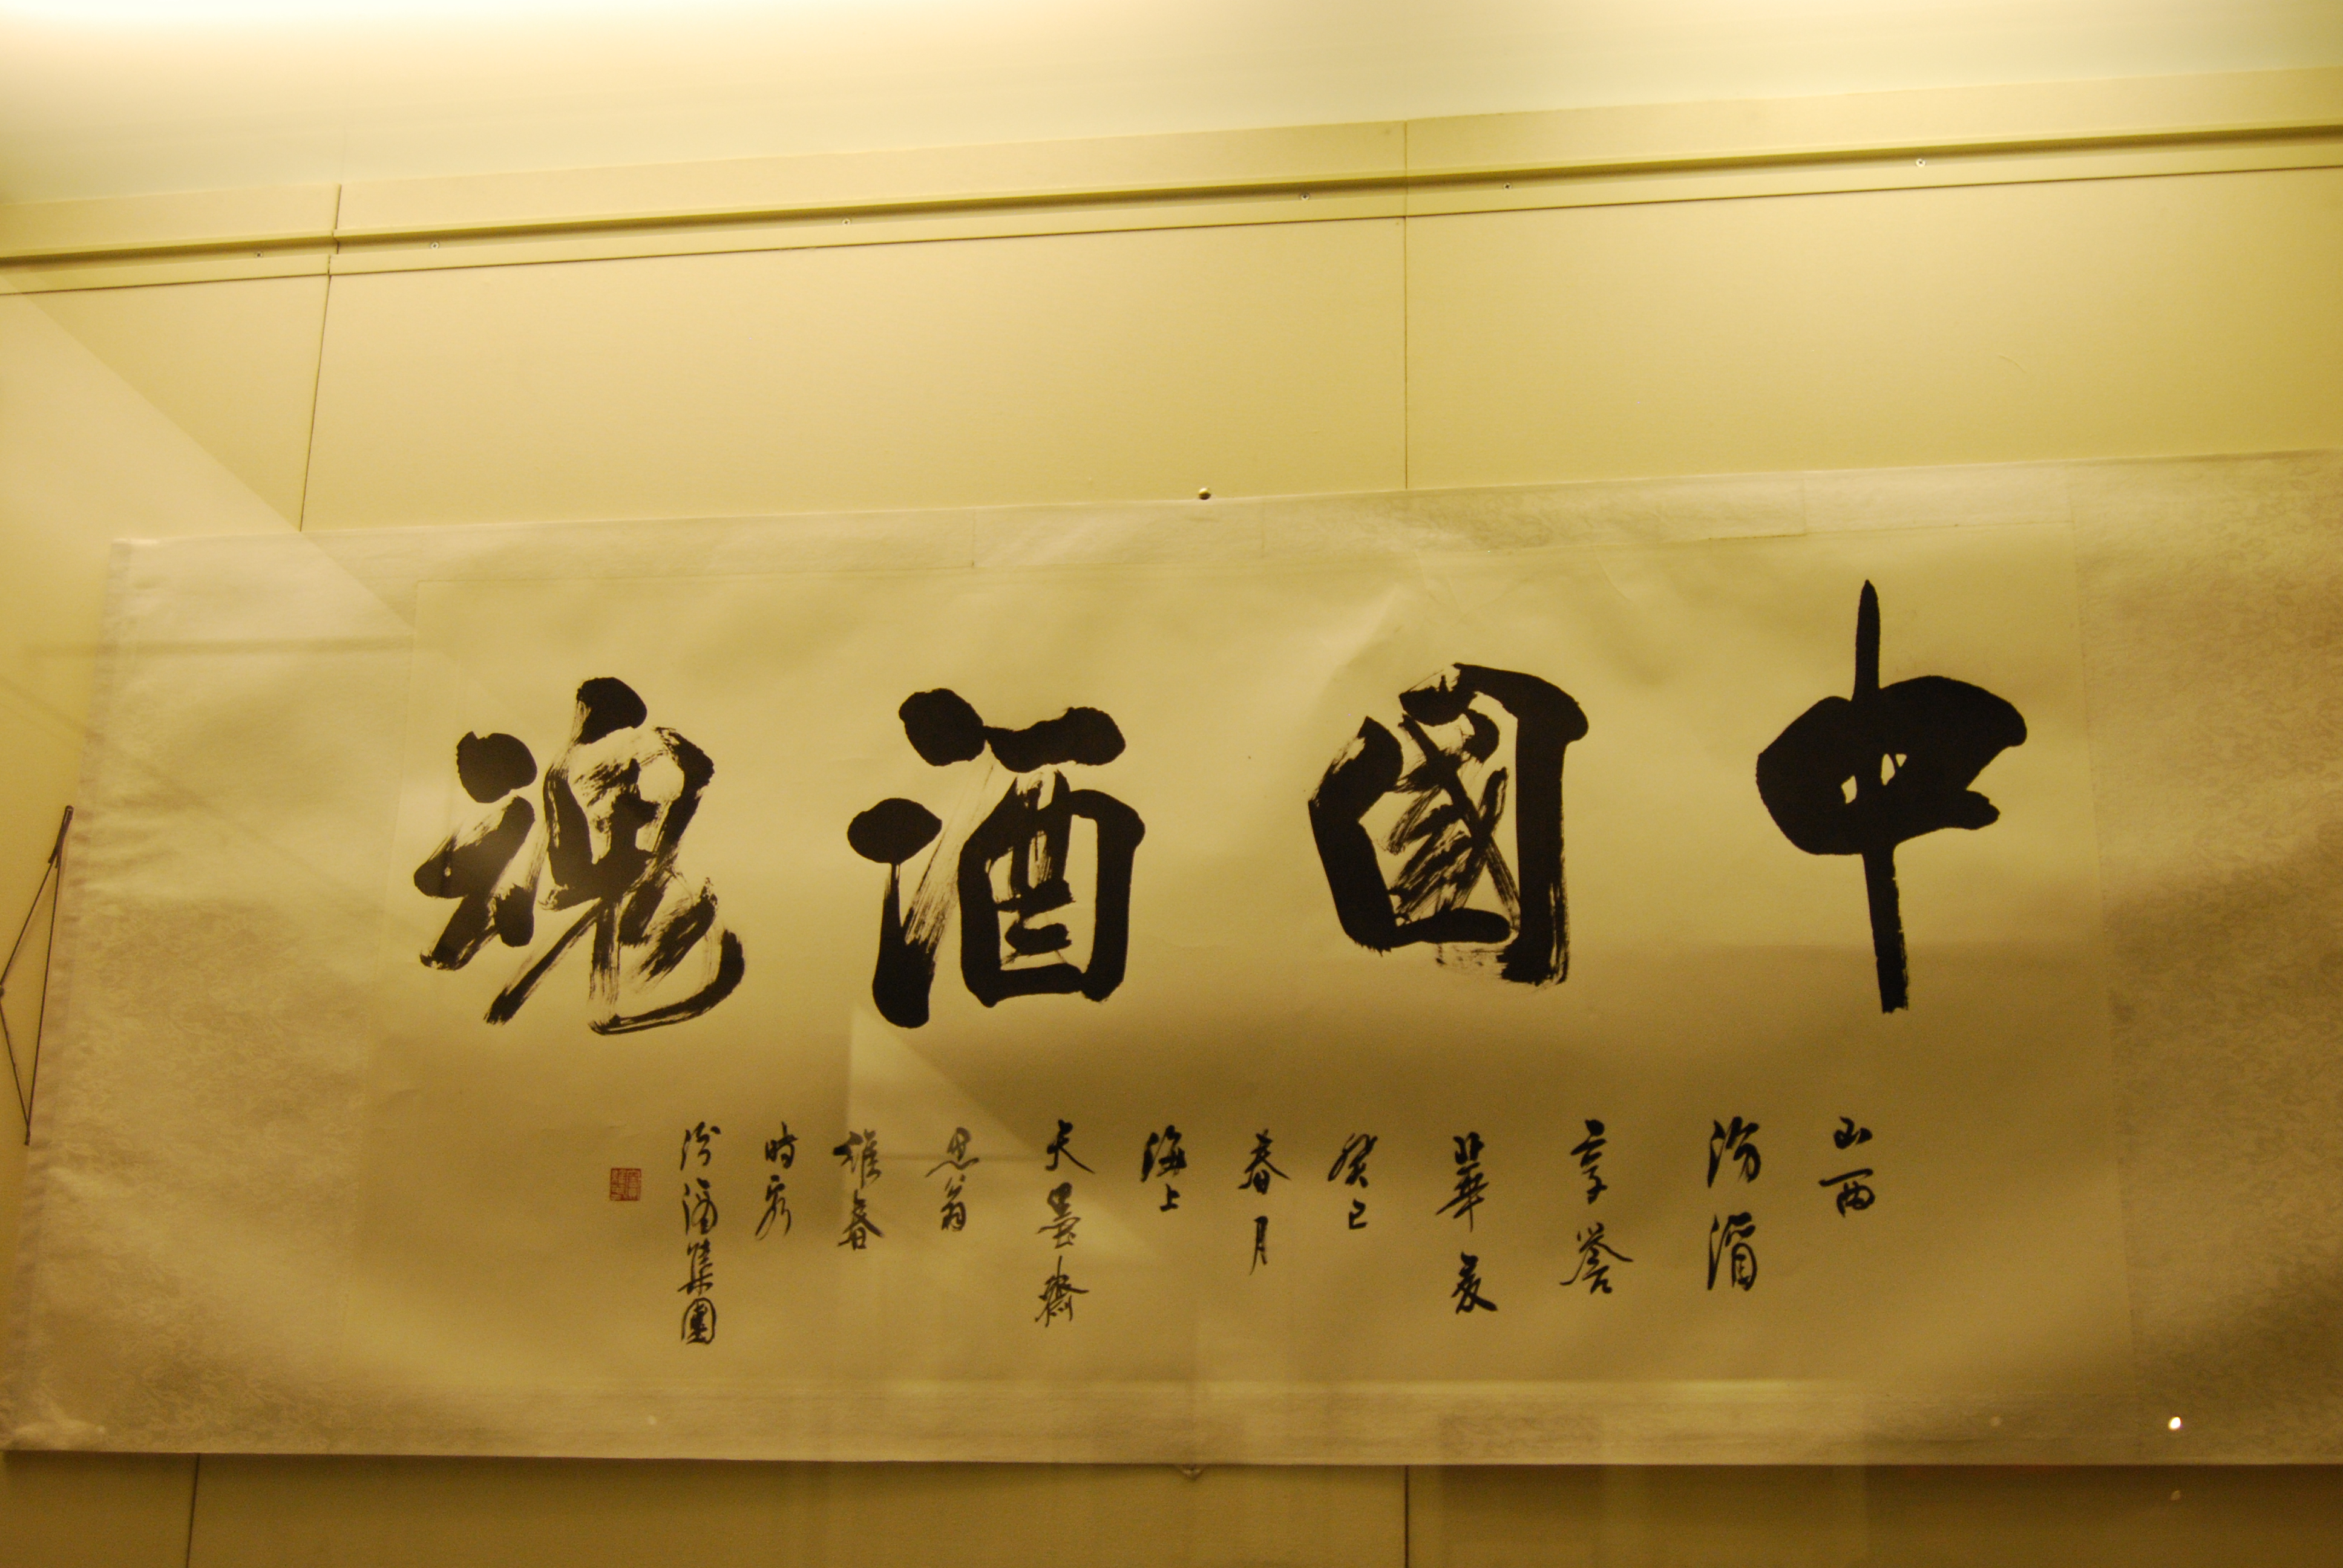 中國酒魂
山西
汾酒
享誉
華夏
癸巳
春月
海上
天墨齋
思翁
維春
時客
汾酒集團